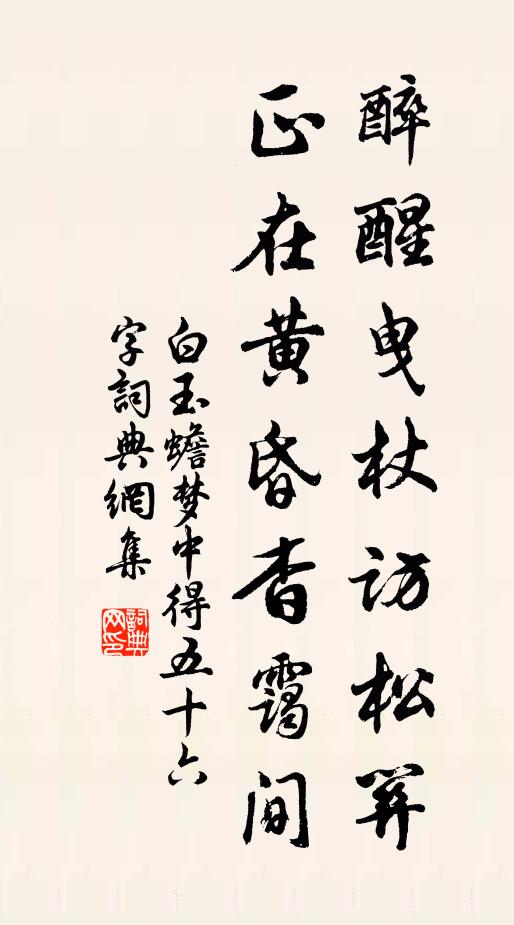 醉醒曳杖訪松關
正在黃昏杳靄間
白玉蟾梦中得五十六
字詞典網集
詞典网印